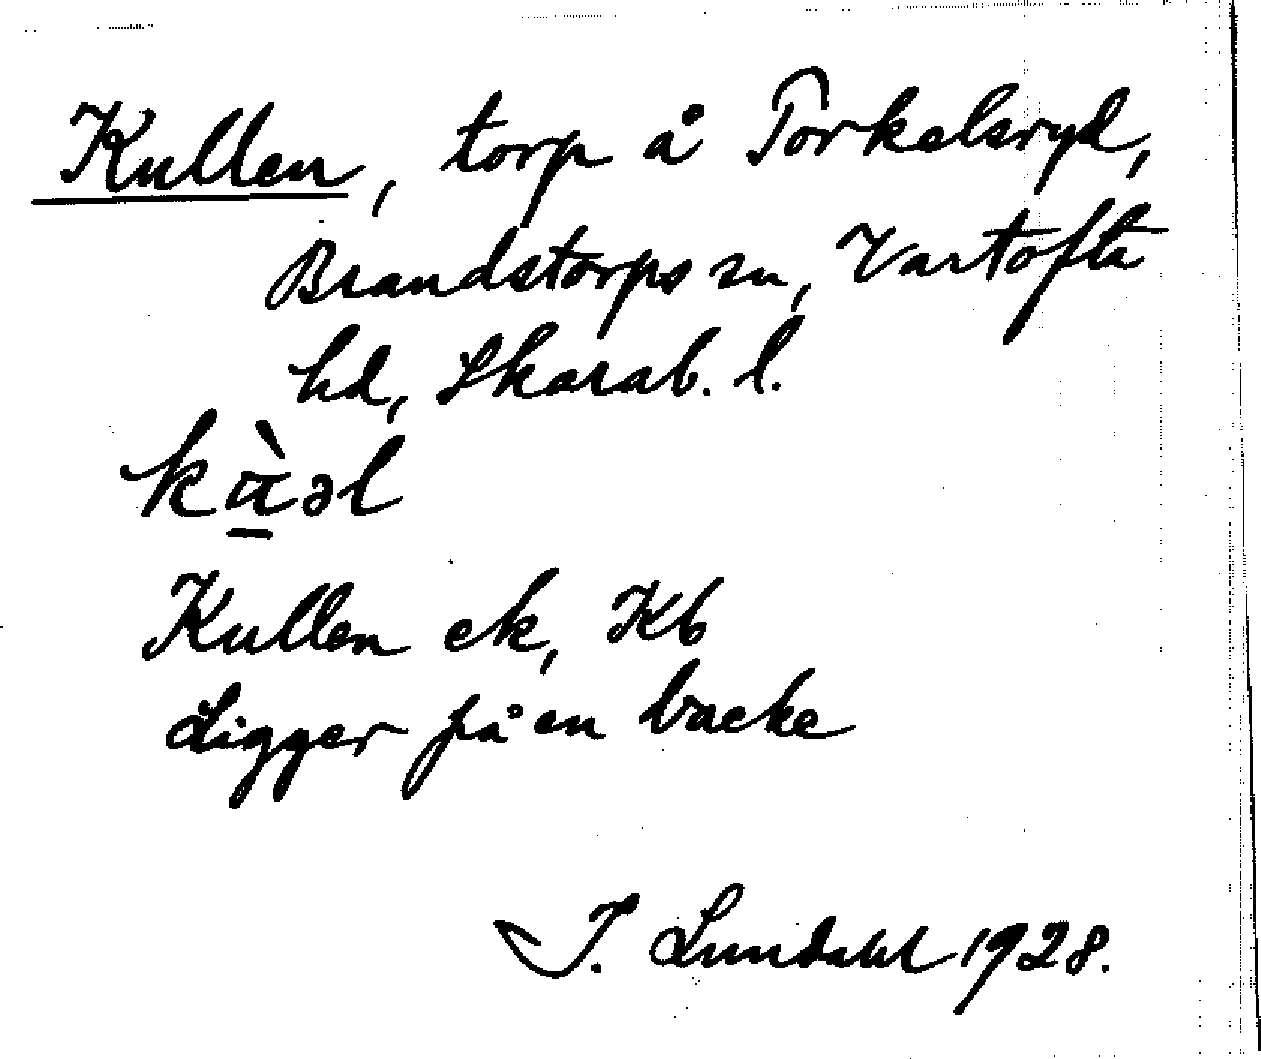 Kullen, torp å Torkelsryd,
Brandstorps sn, Vartofta
hd, Skarab. l.
Kullen ek, Kb
Ligger på en backe
I. Lundahl 1928.